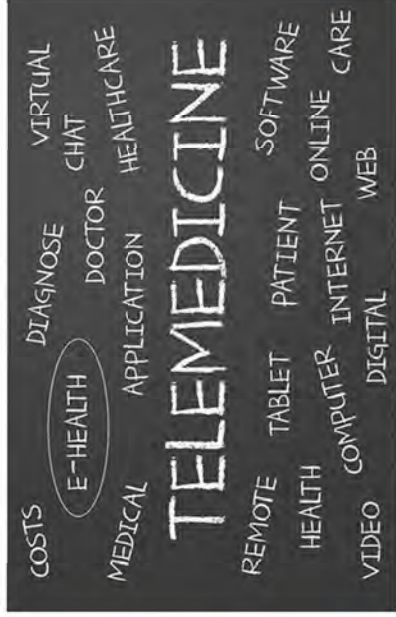 COSTS DIAGNOSE VIRTUAL
E-HEALTH DOCTOR CHAT
MEDICAL APPLICATION HEALTHCARE
TELEMEDICINE
REMOTE TABLET PATIENT SOFTWARE
HEALTH COMPUTER INTERNET ONLINE CARE
VIDEO DIGITAL WEB